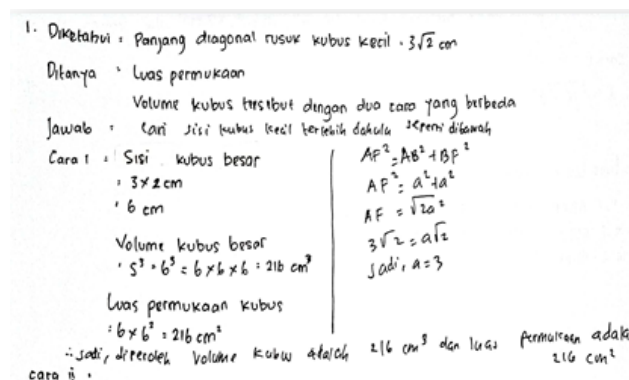 1. Diketahui : Panjang diagonal rusuk kubus kecil = 3√2 cm
Ditanya : Luas permukaan
Volume kubus tersebut dengan dua cara yang berbeda
Jawab : Cari sisi kubus kecil terlebih dahulu seperti dibawah
Cara 1 : Sisi kubus besar
= 3 × 2 cm
= 6 cm
Volume kubus besar
= S³ = 6³ = 6 × 6 × 6 = 216 cm³
Luas permukaan kubus
= 6 × 6² = 216 cm²
AF² = AB² + BF²
AF² = a² + a²
AF = √2a²
3√2 = a√2
Jadi, a = 3
∴ Jadi, diperoleh volume kubus adalah 216 cm³ dan luas permukaan adala
216 cm²
cara ii :